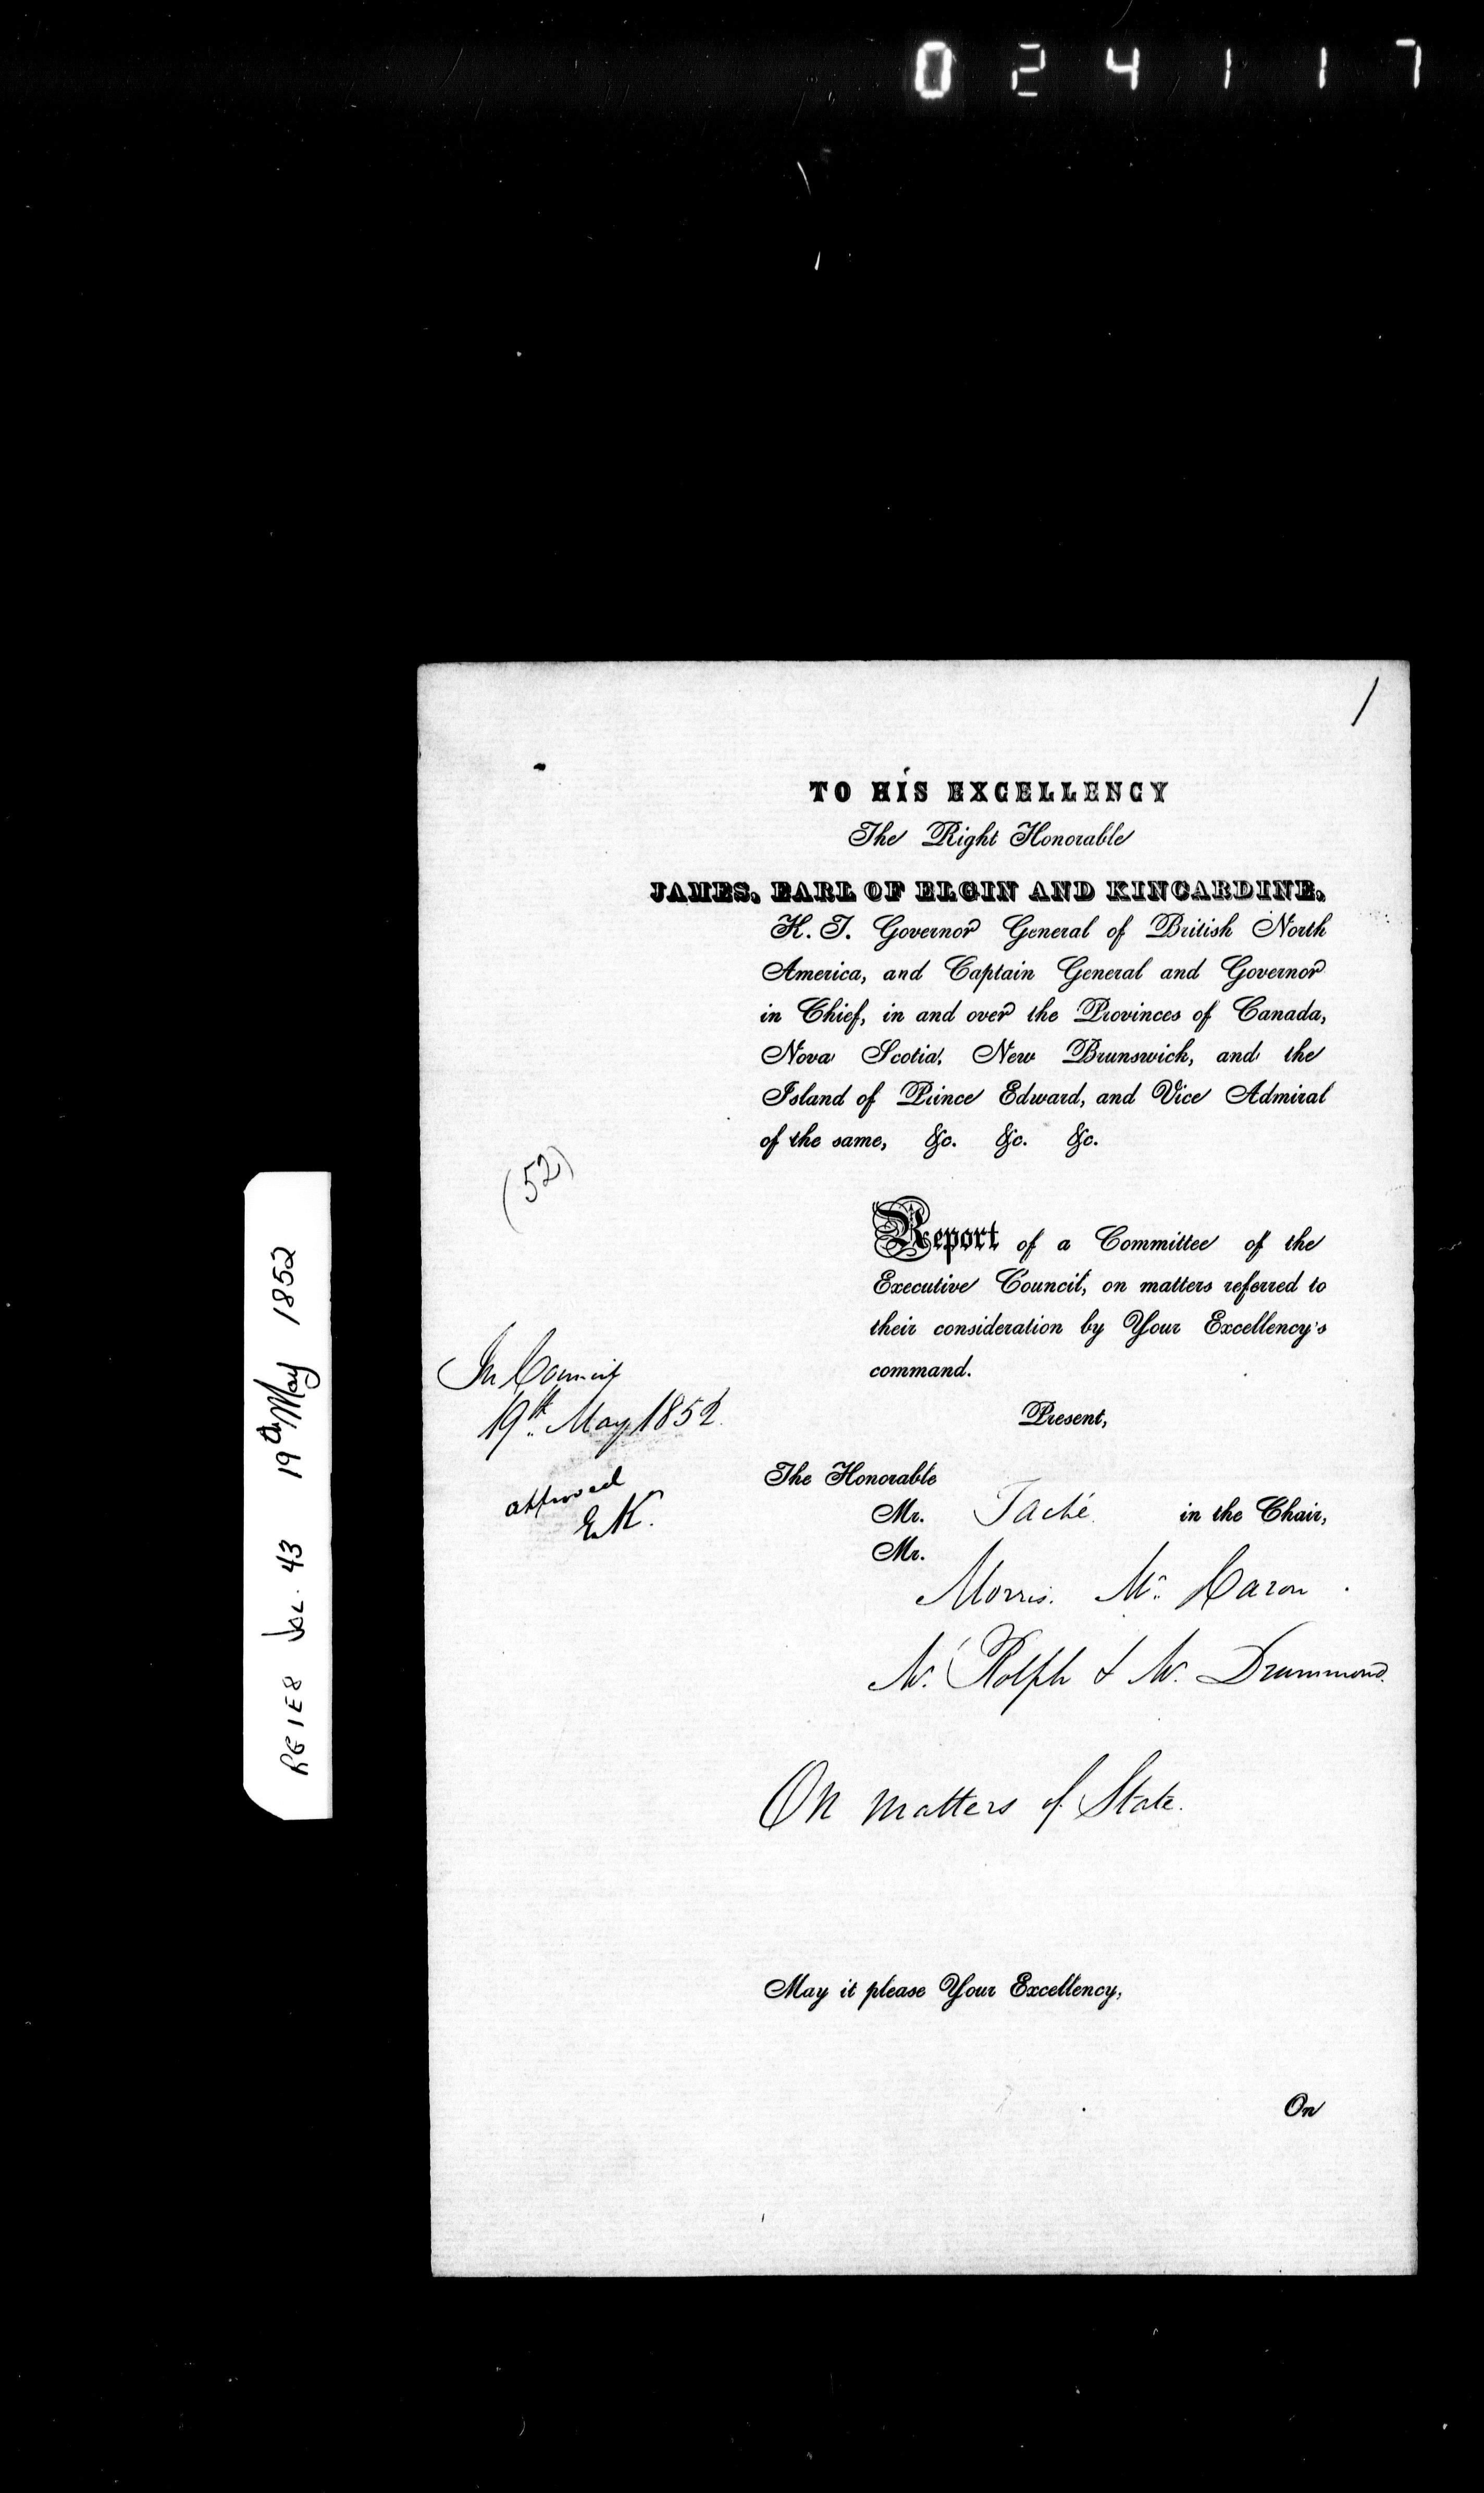 024117
1
TO HIS EXCELLENCY
The Right Honorable
JAMES, EARL OF ELGIN AND KINCARDINE,
K. T. Governor General of British North
America, and Captain General and Governor
in Chief, in and over the Provinces of Canada,
Nova Scotia, New Brunswick, and the
Island of Prince Edward, and Vice Admiral
of the same, &c. &c. &c.
(52)
Report of a Committee of the
Executive Council, on matters referred to
their consideration by Your Excellency's
command.
In Council
19th May 1852
approved
E. K.
Present,
The Honorable
Mr. Taché in the Chair,
Mr.
Morris. Mr. Caron
Mr. Rolph & Mr. Drummond.
On matters of State.
May it please Your Excellency,
On
RG1E8 Vol. 43 19th May 1852